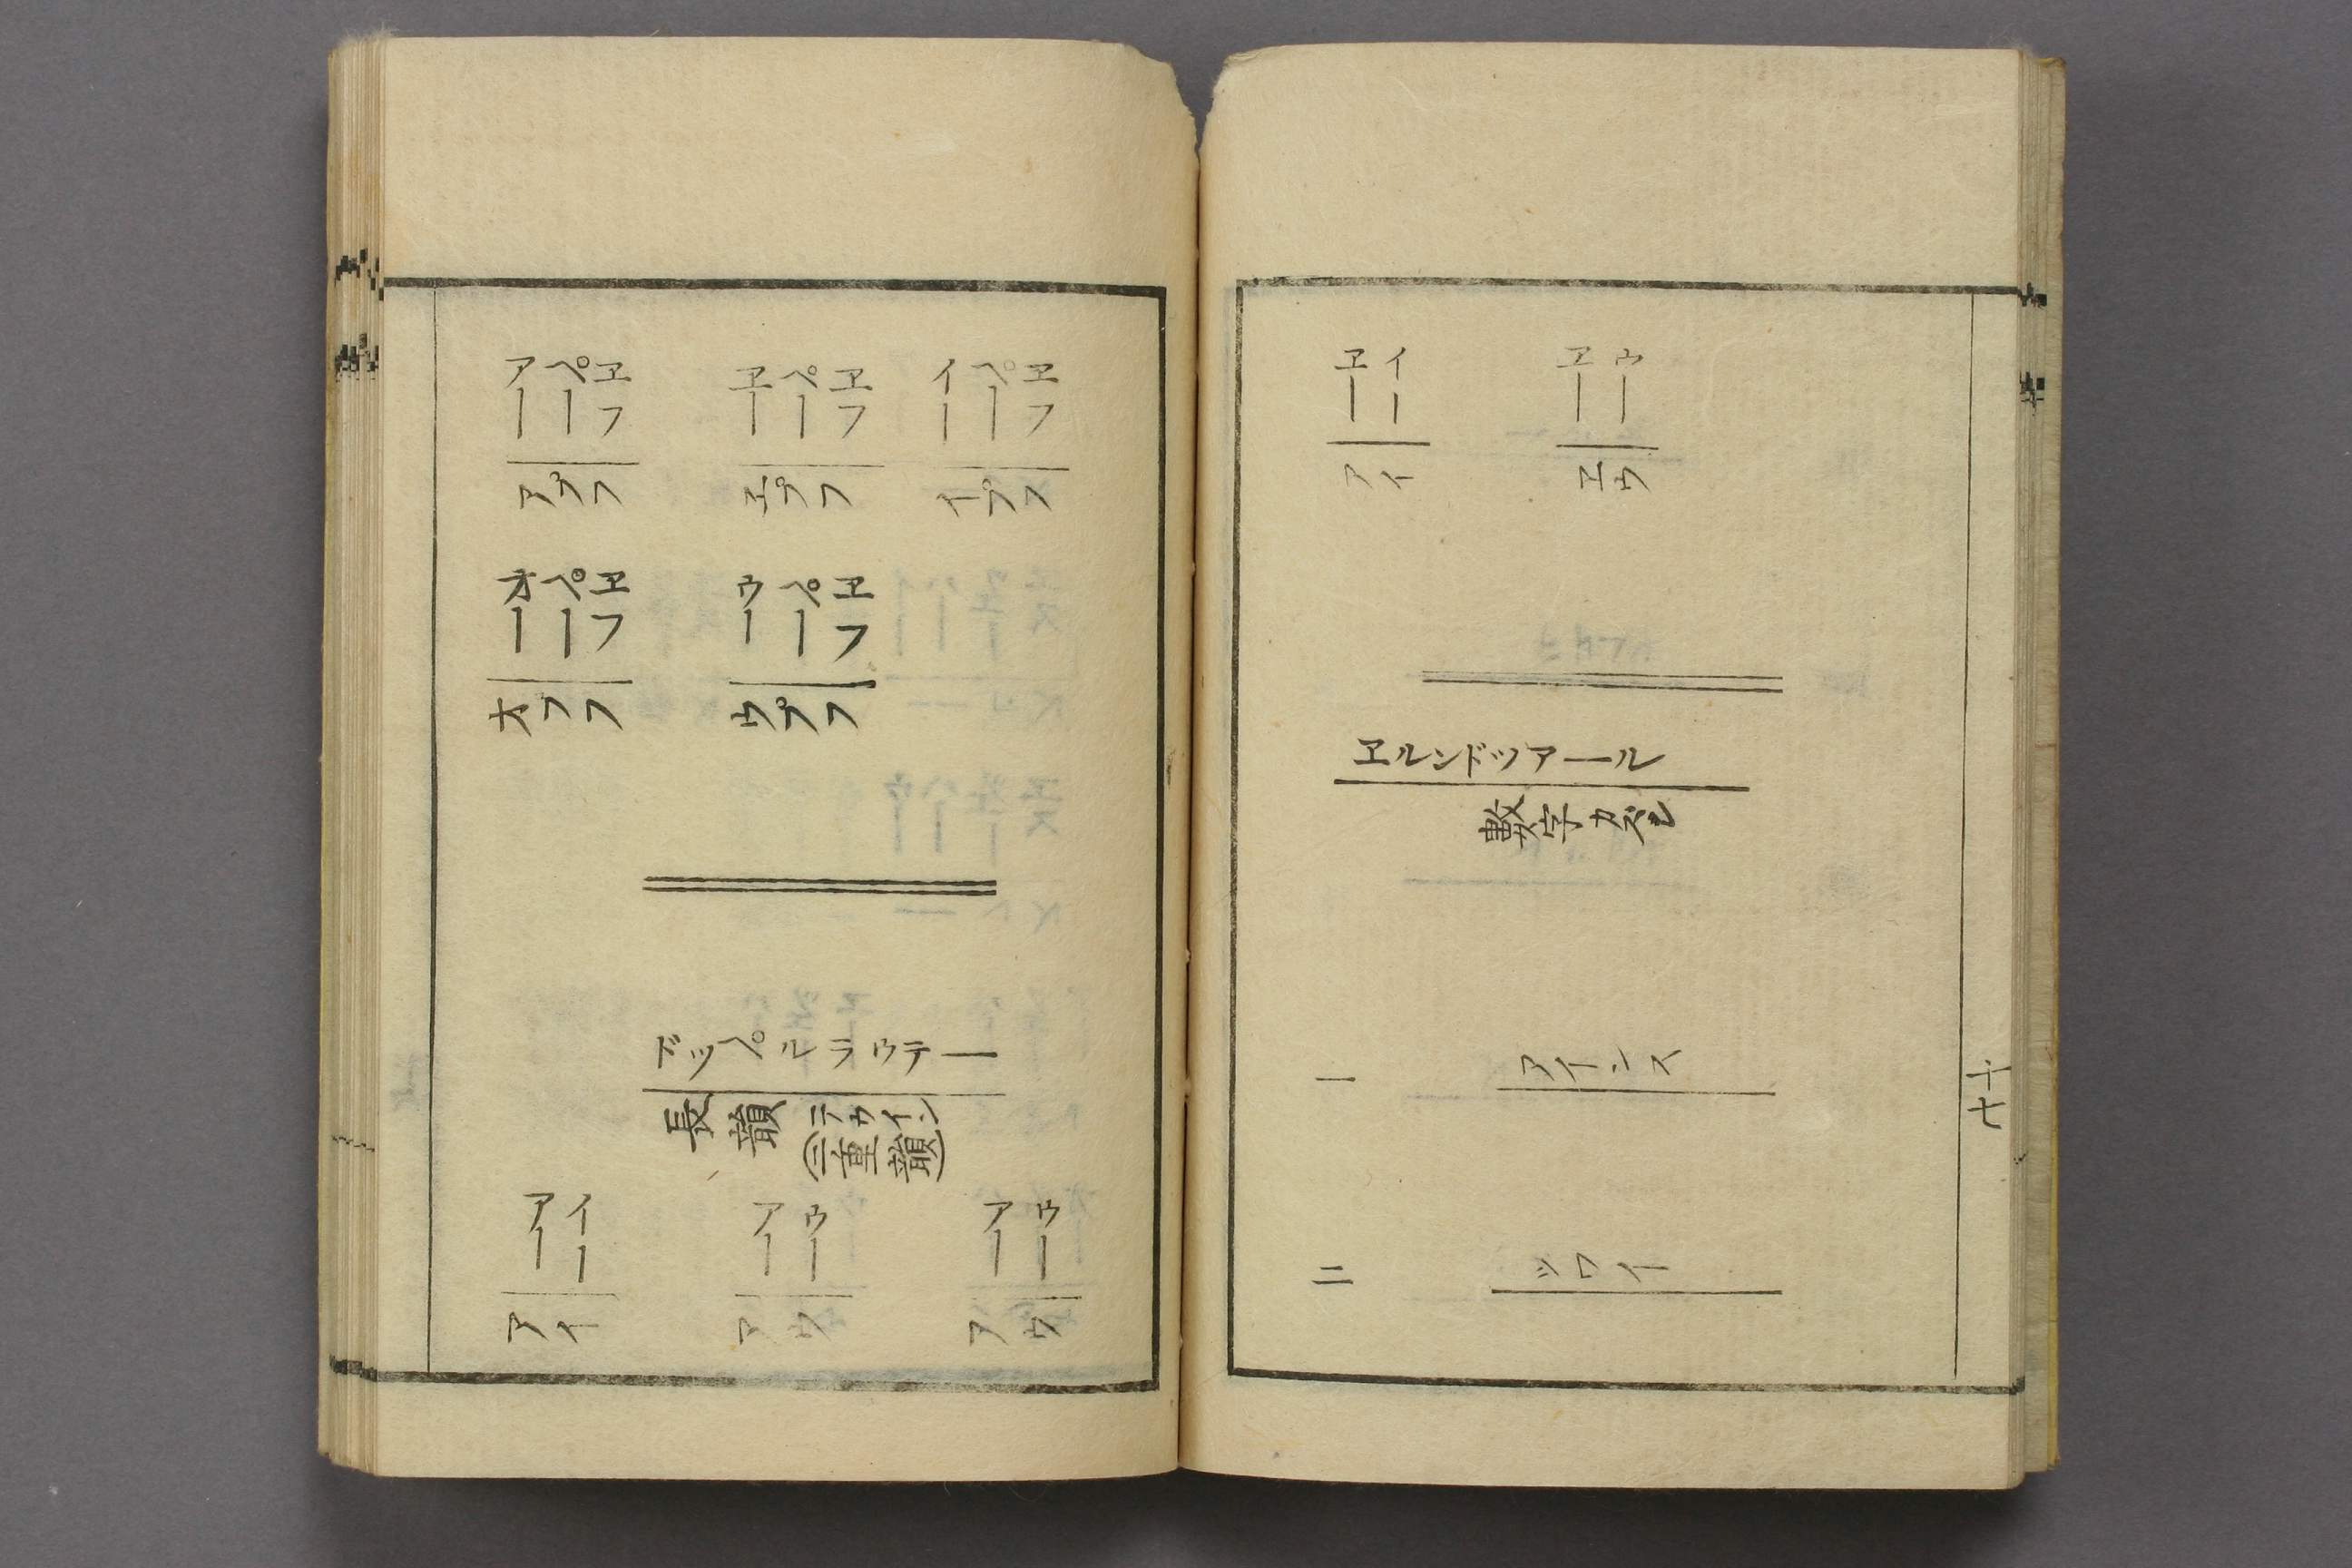 アー ペー ヱフ
アプフ
ヱー ペー ヱフ
ヱプフ
イー ペー ヱフ
イプフ
オー ペー ヱフ
オフフ
ウー ペー ヱフ
ウプフ
ドッペルラウテー
長韻
(ラウイン
(二重韻)
アー イー
アイ
アー ウー
アウ
アー ウー
アウ
ヱー イー
アイ
ヱー ウー
ヱウ
ヱルンドツアール
數字カズジ
一 アインス
二 ツワイ
十七